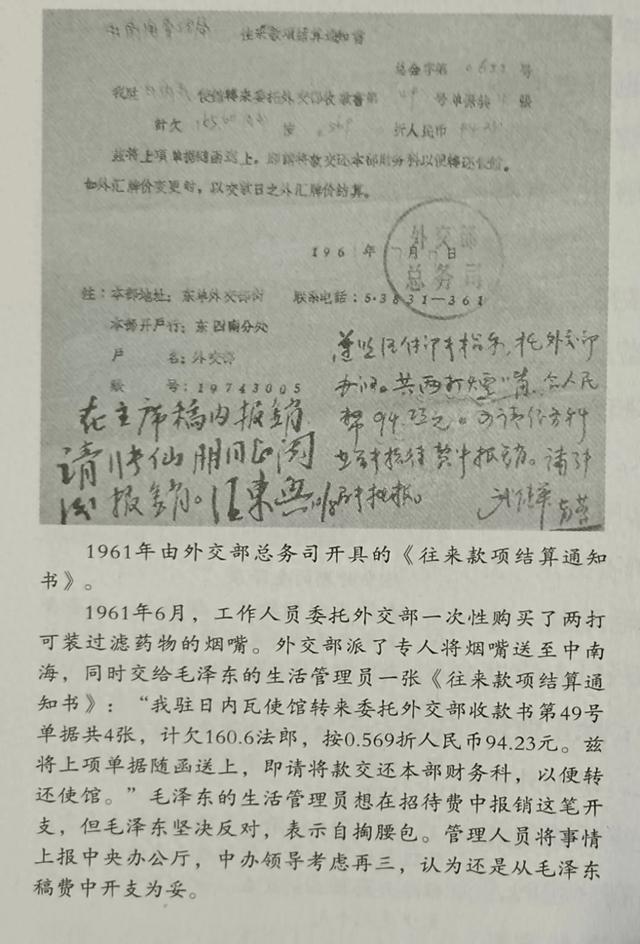 往来款项结算通知书
总会字第0655号
我驻日内瓦使馆转来委托外交部收款书第49号单据共 張
計欠160.6法 按0.569折人民币94.23
兹将上项单据随函送上，即請将款交还本部財务科以便轉还使館。
如外汇牌价变更时，以交款日之外汇牌价結算。
196 年 月 日
外交部
总务司
注：本部地址：东单外交部街 联系电话：5·3831—361
本部开戶行：东四南分处
戶 名：外交部
账 号：19743005
在主席稿内报销
请 仙朋同志阅
报销。汪东兴
共两打烟嘴，合人民
币94.23元。
1961年由外交部总务司开具的《往来款项结算通知
书》。
1961年6月，工作人员委托外交部一次性购买了两打
可装过滤药物的烟嘴。外交部派了专人将烟嘴送至中南
海，同时交给毛泽东的生活管理员一张《往来款项结算通
知书》：“我驻日内瓦使馆转来委托外交部收款书第49号
单据共4张，计欠160.6法郎，按0.569折人民币94.23元。兹
将上项单据随函送上，即请将款交还本部财务科，以便转
还使馆。”毛泽东的生活管理员想在招待费中报销这笔开
支，但毛泽东坚决反对，表示自掏腰包。管理人员将事情
上报中央办公厅，中办领导考虑再三，认为还是从毛泽东
稿费中开支为妥。